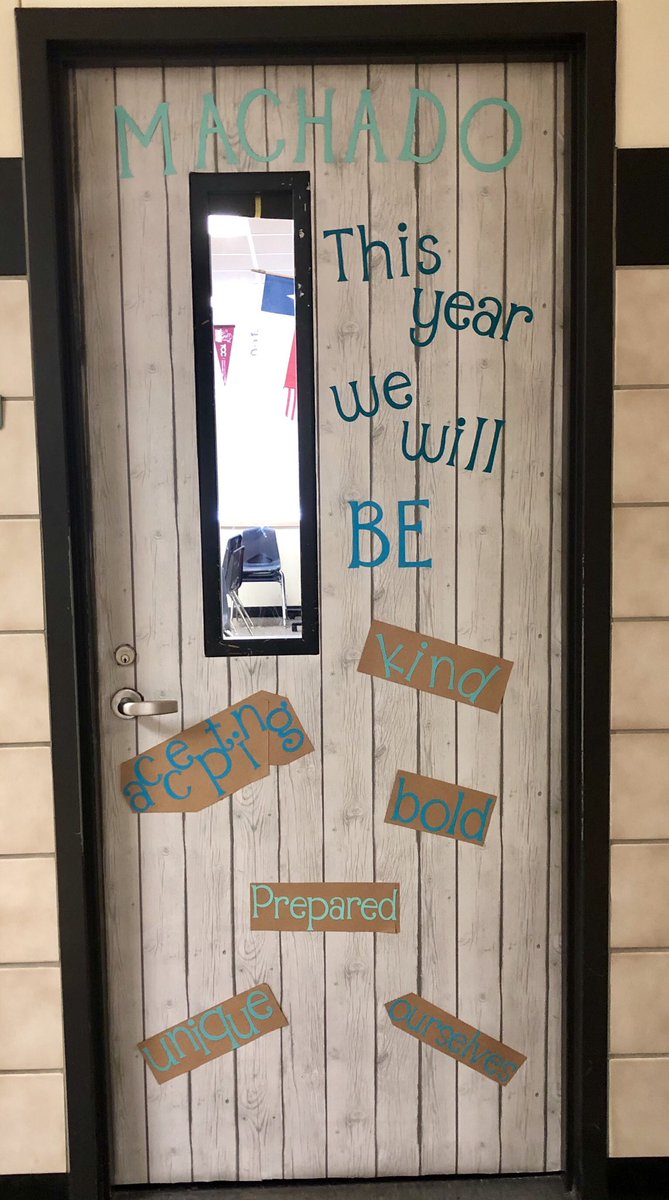 MACHADO
This
year
we
will
BE
kind
accepting
bold
Prepared
unique
ourselves